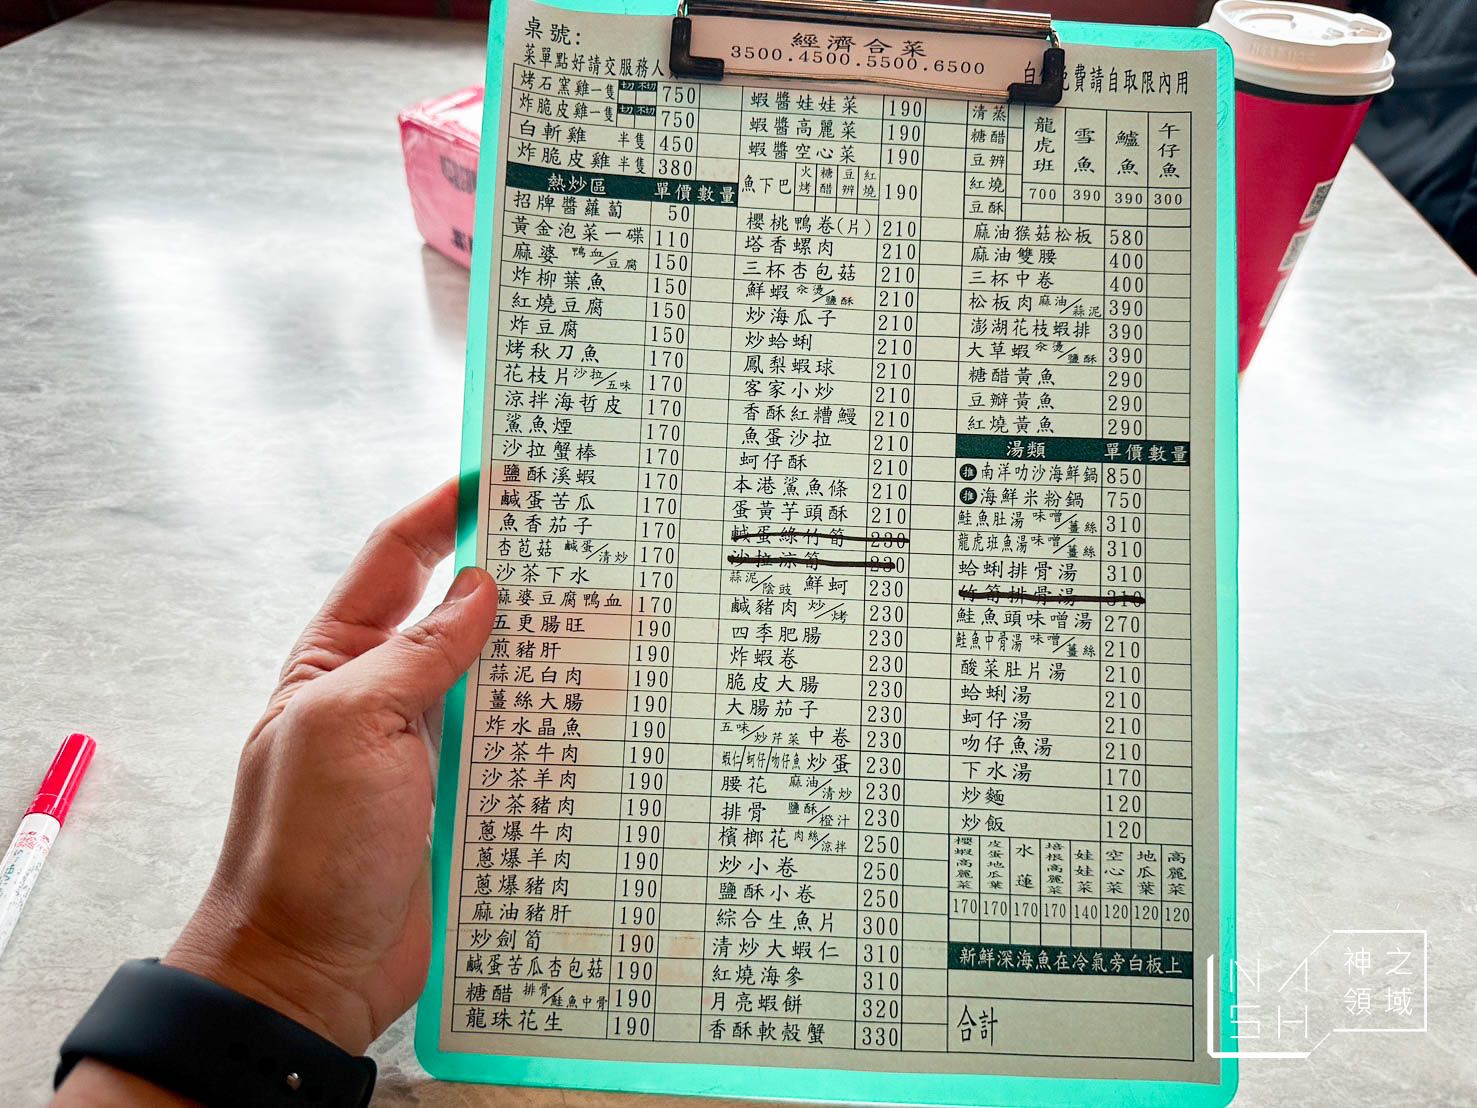 桌號:
菜單點好請交服務人
經濟合菜
3500.4500.5500.6500
費請自取限內用
烤石窯雞一隻 切 不切 750
炸脆皮雞一隻 切 不切 750
白斬雞 半隻 450
炸脆皮雞 半隻 380
熱炒區 單價 數量
招牌醬蘿蔔 50
黃金泡菜一碟 110
麻婆 鴨血/豆腐 150
炸柳葉魚 150
紅燒豆腐 150
炸豆腐 150
烤秋刀魚 170
花枝片 沙拉/五味 170
涼拌海哲皮 170
鯊魚煙 170
沙拉蟹棒 170
鹽酥溪蝦 170
鹹蛋苦瓜 170
魚香茄子 170
杏苞菇 鹹蛋/清炒 170
沙茶下水 170
麻婆豆腐鴨血 170
五更腸旺 190
煎豬肝 190
蒜泥白肉 190
薑絲大腸 190
炸水晶魚 190
沙茶牛肉 190
沙茶羊肉 190
沙茶豬肉 190
蔥爆牛肉 190
蔥爆羊肉 190
蔥爆豬肉 190
麻油豬肝 190
炒劍筍 190
鹹蛋苦瓜杏包菇 190
糖醋 排骨/鮭魚中骨 190
龍珠花生 190
蝦醬娃娃菜 190
蝦醬高麗菜 190
蝦醬空心菜 190
魚下巴 火烤 糖醋 豆辨 紅燒 190
櫻桃鴨卷(片) 210
塔香螺肉 210
三杯杏包菇 210
鮮蝦 汆燙/鹽酥 210
炒海瓜子 210
炒蛤蜊 210
鳳梨蝦球 210
客家小炒 210
香酥紅糟鰻 210
魚蛋沙拉 210
蚵仔酥 210
本港鯊魚條 210
蛋黃芋頭酥 210
鹹蛋綠竹筍 230
沙拉涼筍 230
蒜泥/陰豉 鮮蚵 230
鹹豬肉 炒/烤 230
四季肥腸 230
炸蝦卷 230
脆皮大腸 230
大腸茄子 230
五味/炒芹菜 中卷 230
蝦仁/蚵仔/吻仔魚 炒蛋 230
腰花 麻油/清炒 230
排骨 鹽酥/橙汁 230
檳榔花 肉絲/涼拌 250
炒小卷 250
鹽酥小卷 250
綜合生魚片 300
清炒大蝦仁 310
紅燒海參 310
月亮蝦餅 320
香酥軟殼蟹 330
清蒸 糖醋 豆辨 紅燒 豆酥
龍虎班 雪魚 鱸魚 午仔魚
700 390 390 300
麻油猴菇松板 580
麻油雙腰 400
三杯中卷 400
松板肉 麻油/蒜泥 390
澎湖花枝蝦排 390
大草蝦 汆燙/鹽酥 390
糖醋黃魚 290
豆瓣黃魚 290
紅燒黃魚 290
湯類 單價 數量
推 南洋叻沙海鮮鍋 850
推 海鮮米粉鍋 750
鮭魚肚湯 味噌/薑絲 310
龍虎班魚湯 味噌/薑絲 310
蛤蜊排骨湯 310
竹筍排骨湯 310
鮭魚頭味噌湯 270
鮭魚中骨湯 味噌/薑絲 210
酸菜肚片湯 210
蛤蜊湯 210
蚵仔湯 210
吻仔魚湯 210
下水湯 170
炒麵 120
炒飯 120
櫻蝦高麗菜 皮蛋地瓜葉 水蓮 培根高麗菜 娃娃菜 空心菜 地瓜葉 高麗菜
170 170 170 170 140 120 120 120
新鮮深海魚在冷氣旁白板上
合計
NASH
神之領域